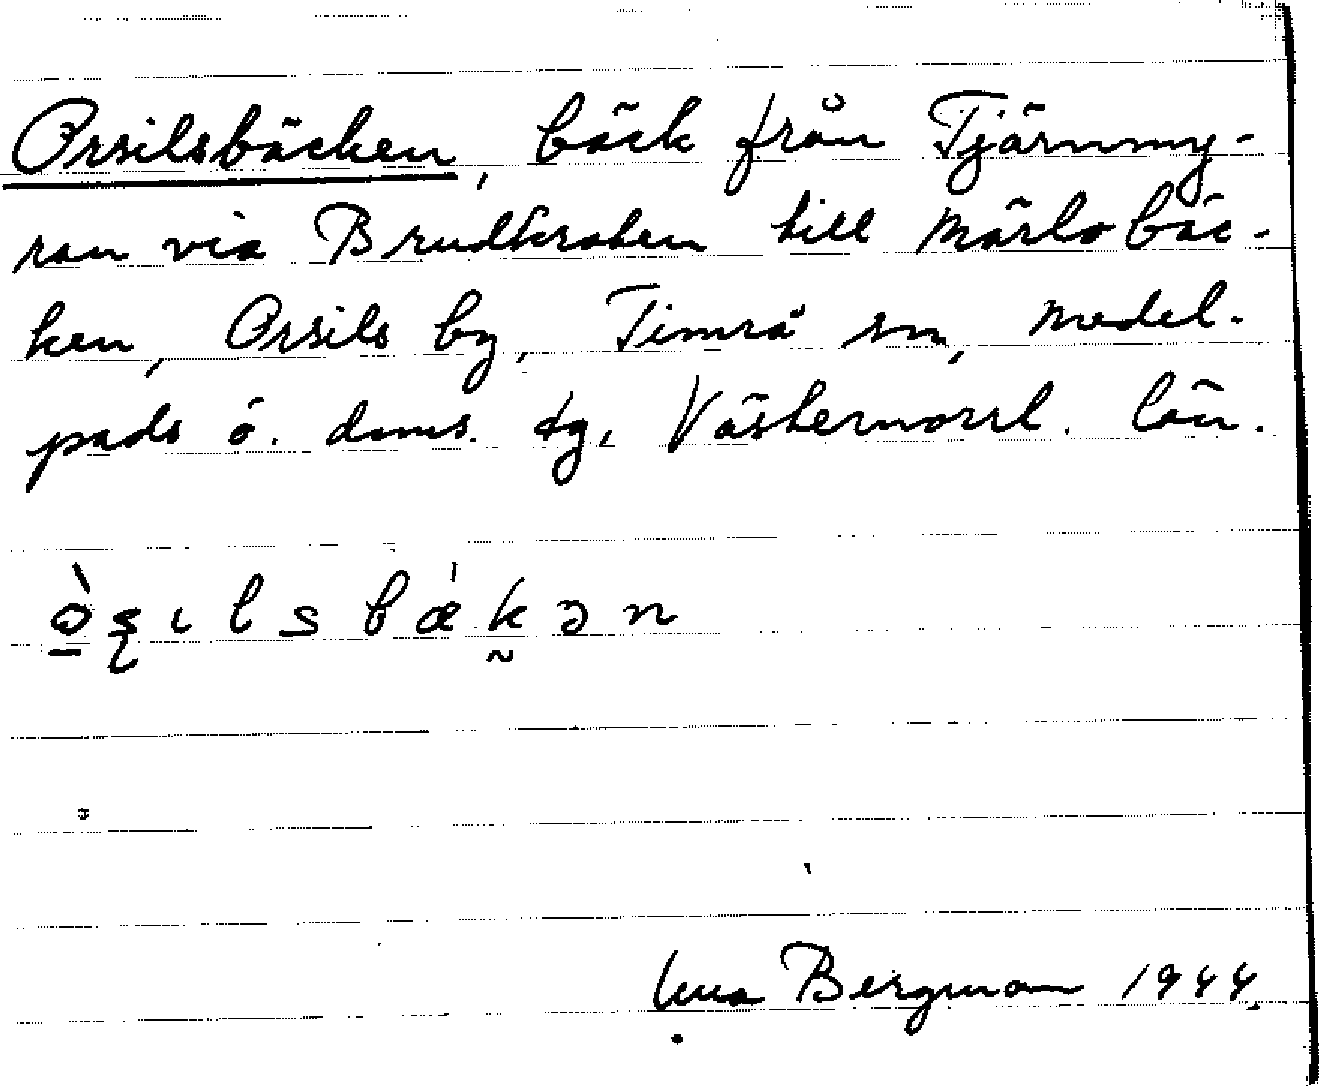 Orsilsbäcken, bäck från Tjärnmy-
ran via Brudkraken till Märlobäc-
ken, Orsils by, Timrå sn, Medel-
pads ö. doms. fg, Västernorrl. län.
ò̱ʂɩlsbæ̍k̰ən
Bergman 1944.